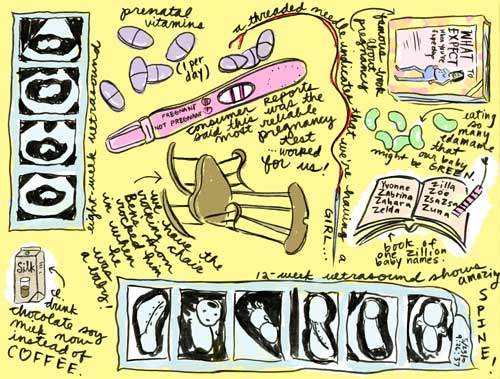 prenatal
vitamins
(1 per
day)
eight-week ultrasound
PREGNANT
NOT PREGNANT
consumer reports
said this was the
most reliable
pregnancy
test
...worked
for us!
a threaded needle indicates that we're having a
GIRL...
famous book
about
pregnancy
WHAT TO
EXPECT
When You're
Expecting
eating
so many
edamame
that
our baby
might be GREEN.
Yvonne
Zabrina
Zahara
Zelda
Zilla
Zoe
Zsa Zsa
Zuna
book of
one zillion
baby names.
we have the
rock chair
Ben's mom
rocked him
in when
he was
a baby!
Silk
I drink
chocolate soy
milk now
instead of
COFFEE.
12-week ultrasound shows amazing
SPINE!